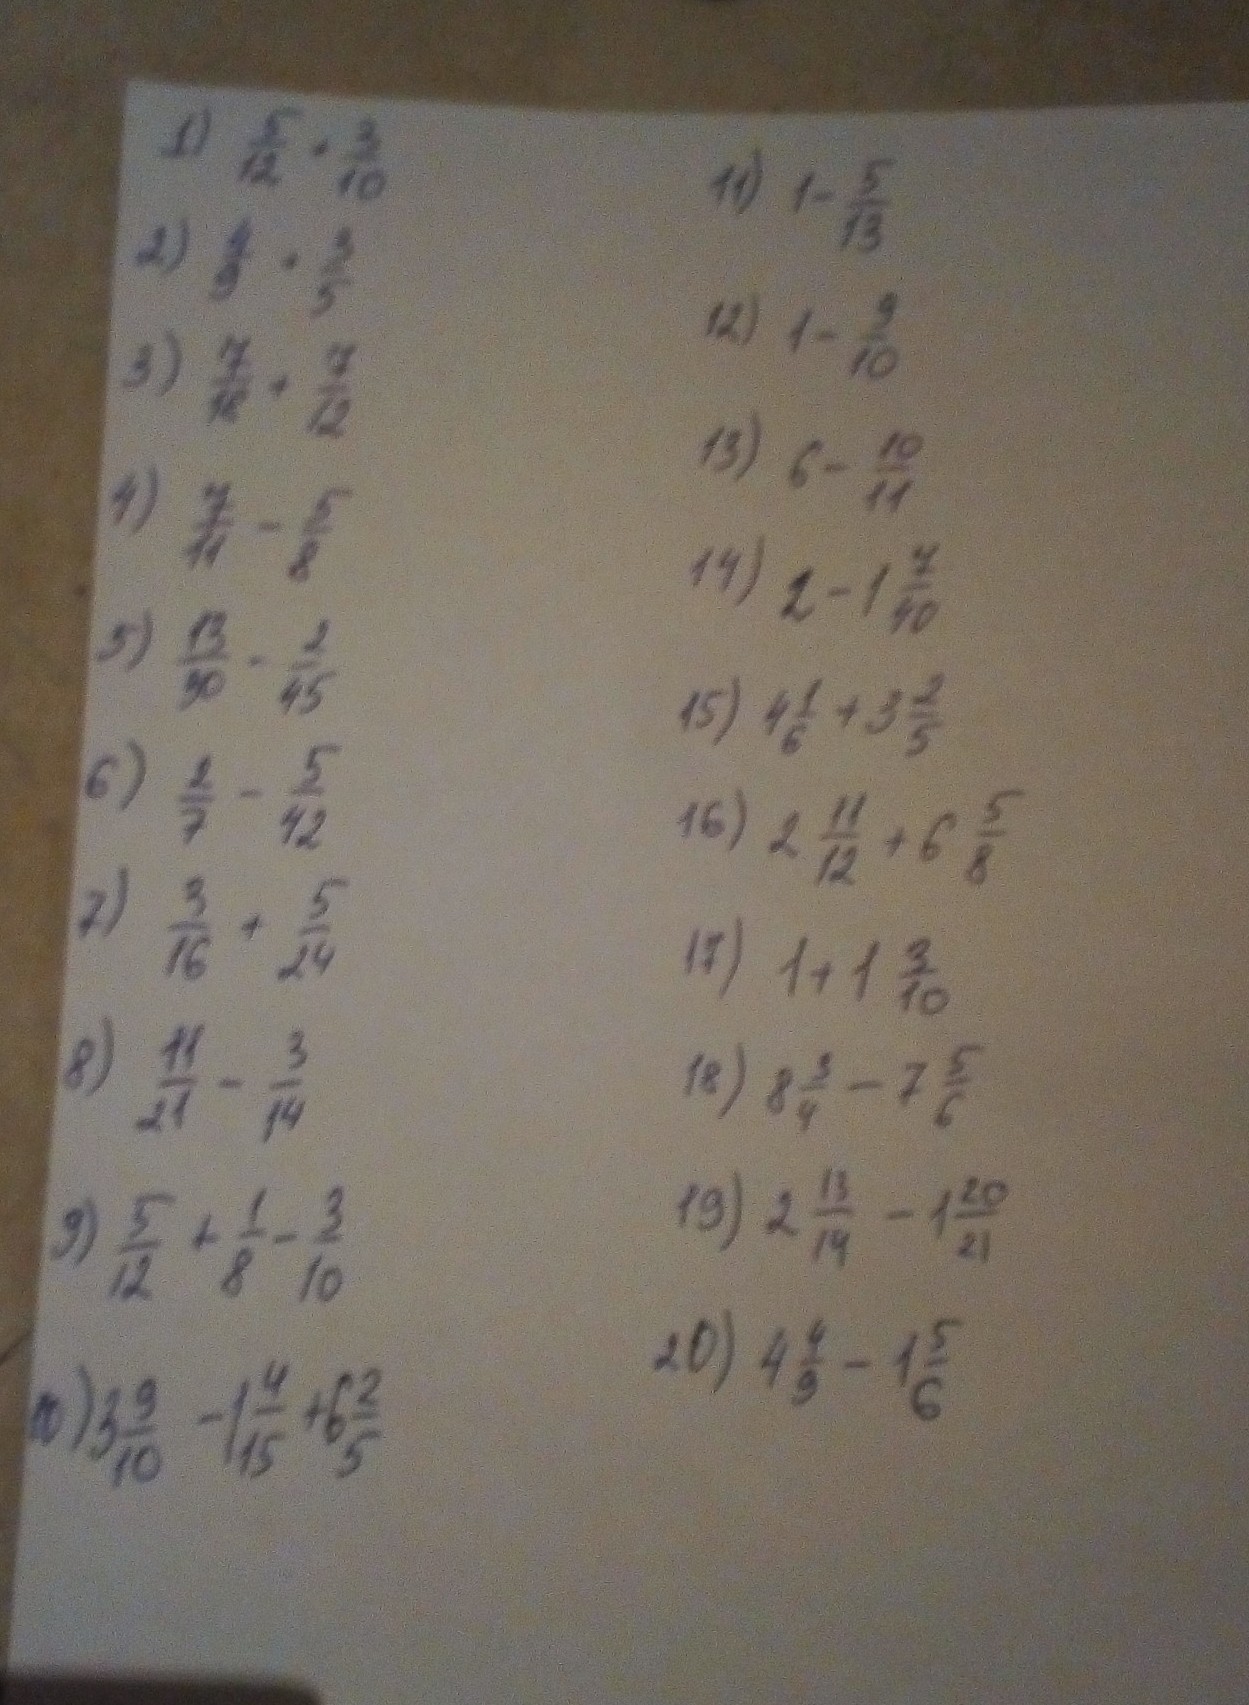 1) 5/12 + 3/10
2) 4/9 + 3/5
3) 7/18 + 7/12
4) 7/11 - 5/8
5) 13/30 - 2/45
6) 2/7 - 5/42
7) 3/16 + 5/24
8) 11/21 - 3/14
9) 5/12 + 1/8 - 3/10
10) 3 9/10 - 1 4/15 + 6 2/5
11) 1 - 5/13
12) 1 - 9/10
13) 6 - 10/11
14) 2 - 1 7/10
15) 4 1/6 + 3 2/5
16) 2 11/12 + 6 5/8
17) 1 + 1 3/10
18) 8 3/4 - 7 5/6
19) 2 13/14 - 1 20/21
20) 4 4/9 - 1 5/6